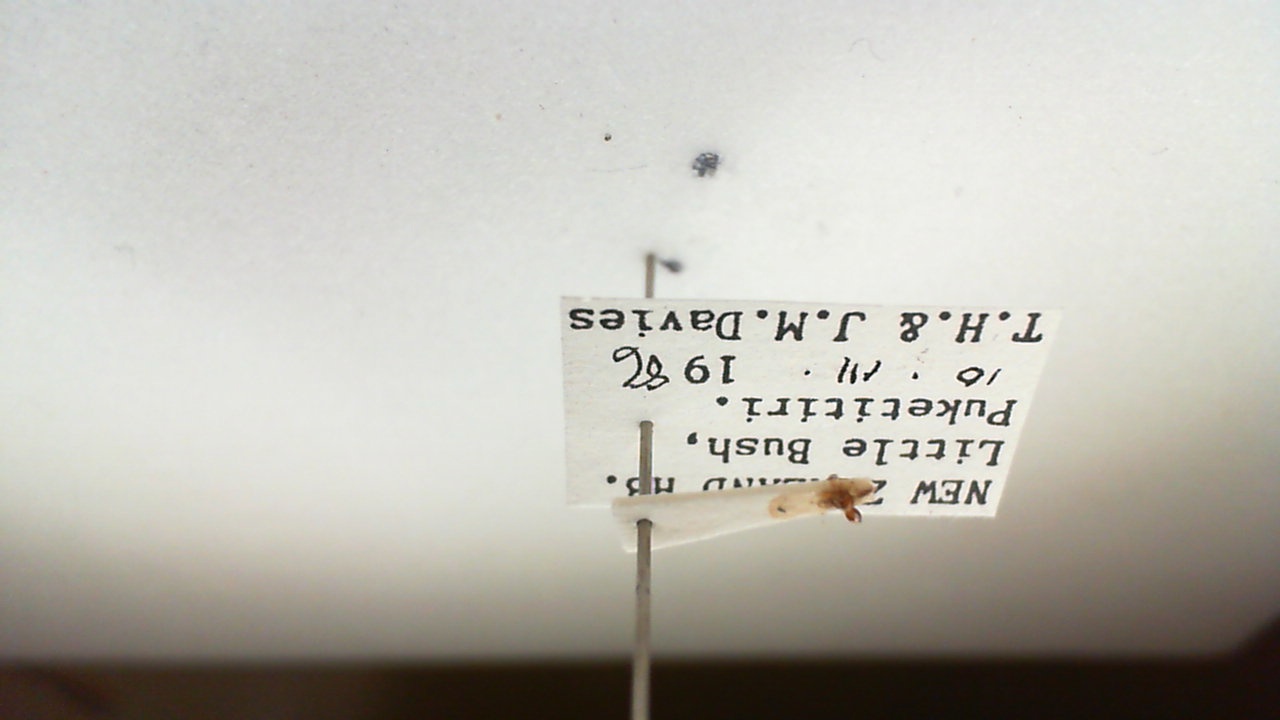 NEW ZEALAND HB.
Little Bush,
Puketitiri.
10 . III . 1986
T.H.& J.M.Davies